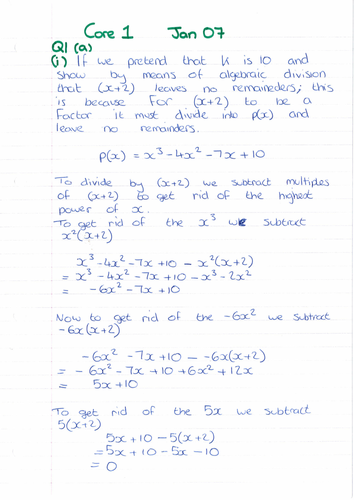 Core 1 Jan 07
Q1 (a)
(i) If we pretend that k is 10 and
show by means of algebraic division
that (x+2) leaves no remaineders; this
is because for (x+2) to be a
factor it must divide into p(x) and
leave no remainders.
p(x) = x³ - 4x² - 7x + 10
To divide by (x+2) we subtract multiples
of (x+2) to get rid of the highest
power of x.
To get rid of the x³ we subtract
x²(x+2)
x³ - 4x² - 7x + 10 - x²(x+2)
= x³ - 4x² - 7x + 10 - x³ - 2x²
= - 6x² - 7x + 10
Now to get rid of the -6x² we subtract
-6x(x+2)
-6x² - 7x + 10 - -6x(x+2)
= - 6x² - 7x + 10 + 6x² + 12x
= 5x + 10
To get rid of the 5x we subtract
5(x+2)
5x + 10 - 5(x+2)
= 5x + 10 - 5x - 10
= 0